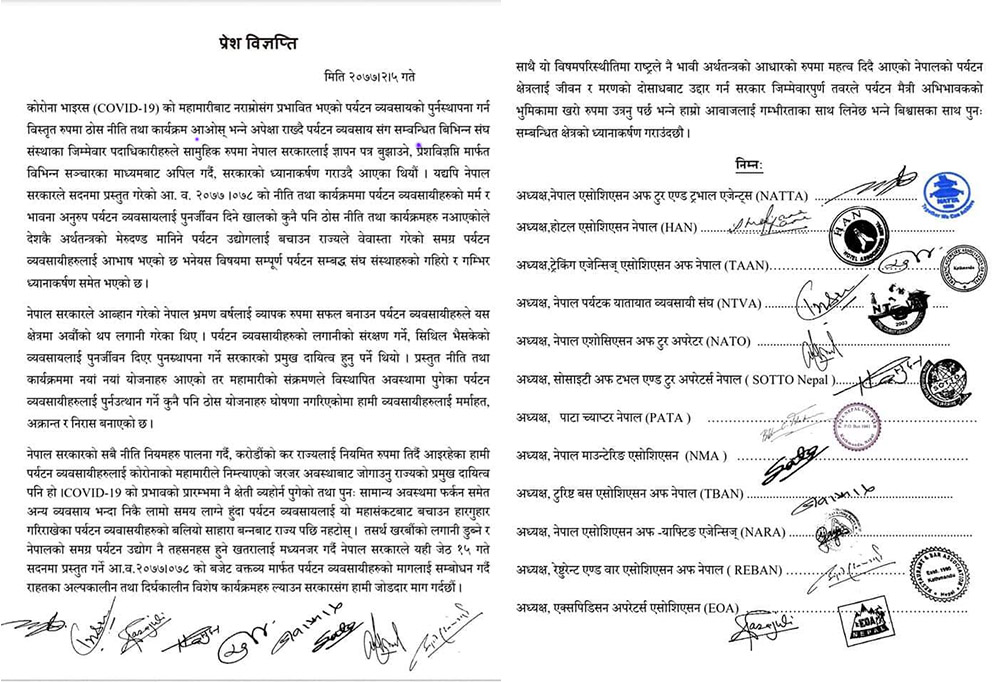 प्रेश विज्ञप्ति
मिति २०७७।२।५ गते
कोरोना भाइरस (COVID-19) को महामारीबाट नराम्रोसंग प्रभावित भएको पर्यटन व्यवसायको पुर्नस्थापना गर्न
विस्तृत रुपमा ठोस नीति तथा कार्यक्रम आओस् भन्ने अपेक्षा राख्दै पर्यटन व्यवसाय संग सम्वन्धित बिभिन्न संघ
संस्थाका जिम्मेवार पदाधिकारीहरुले सामुहिक रुपमा नेपाल सरकारलाई ज्ञापन पत्र बुझाउने, प्रेशविज्ञप्ति मार्फत
विभिन्न सञ्चारका माध्यमबाट अपिल गर्दै, सरकारको ध्यानाकर्षण गराउदै आएका थियौं । यद्यपि नेपाल
सरकारले सदनमा प्रस्तुत गरेको आ. व. २०७७।०७८ को नीति तथा कार्यक्रममा पर्यटन व्यवसायीहरुको मर्म र
भावना अनुरुप पर्यटन व्यवसायलाई पुनर्जीवन दिने खालको कुनै पनि ठोस नीति तथा कार्यक्रमहरु नआएकोले
देशकै अर्थतन्त्रको मेरुदण्ड मानिने पर्यटन उद्योगलाई बचाउन राज्यले वेवास्ता गरेको समग्र पर्यटन
व्यवसायीहरुलाई आभाष भएको छ भनेयस विषयमा सम्पूर्ण पर्यटन सम्बद्ध संघ संस्थाहरुको गहिरो र गम्भिर
ध्यानाकर्षण समेत भएको छ ।
नेपाल सरकारले आव्हान गरेको नेपाल भ्रमण वर्षलाई व्यापक रुपमा सफल बनाउन पर्यटन व्यवसायीहरुले यस
क्षेत्रमा अर्वौको थप लगानी गरेका थिए । पर्यटन व्यवसायीहरुको लगानीको संरक्षण गर्ने, सिथिल भैसकेको
व्यवसायलाई पुनर्जीवन दिएर पुनस्र्थापना गर्ने सरकारको प्रमुख दायित्व हुनु पर्ने थियो । प्रस्तुत नीति तथा
कार्यक्रममा नयां नयां योजनाहरु आएको तर महामारीको संक्रमणले विस्थापित अवस्थामा पुगेका पर्यटन
व्यवसायीहरुलाई पुर्नउत्थान गर्ने कुनै पनि ठोस योजनाहरु घोषणा नगरिएकोमा हामी व्यवसायीहरुले मर्माहत,
अक्रान्त र निरास बनाएको छ ।
नेपाल सरकारको सबै नीति नियमहरु पालना गर्दै, करोडौंको कर राज्यलाई नियमित रुपमा तिर्दै आइरहेका हामी
पर्यटन व्यवसायीहरुलाई कोरोनाको महामारीले निम्त्याएको जरजर अवस्थाबाट जोगाउनु राज्यको प्रमुख दायित्व
पनि हो ।COVID-19 को प्रभावको प्रारम्भमा नै क्षेती व्यहोर्न पुगेको तथा पुनः सामान्य अवस्थमा फर्कन समेत
अन्य व्यवसाय भन्दा निकै लामो समय लाग्ने हुंदा पर्यटन व्यवसायलाई यो महासंकटबाट बचाउन हारगुहार
गरिराखेका पर्यटन व्यवसायीहरुको बलियो साहारा बन्नबाट राज्य पछि नहटोस् । तसर्थ खरबौंको लगानी डुब्ने र
नेपालको समग्र पर्यटन उद्योग नै तहसनहस हुने खतरालाई मध्यनजर गर्दै नेपाल सरकारले यही जेठ १५ गते
सदनमा प्रस्तुत गर्ने आ.व.२०७७।०७८ को बजेट वक्तव्य मार्फत पर्यटन व्यवसायीहरुको मागलाई सम्बोधन गर्दै
राहतका अल्पकालीन तथा दिर्घकालीन विशेष कार्यक्रमहरु ल्याउन सरकारसंग हामी जोडदार माग गर्दछौं ।
साथै यो विषमपरिस्थीतिमा राष्ट्रले नै भावी अर्थतन्त्रको आधारको रुपमा महत्व दिदै आएको नेपालको पर्यटन
क्षेत्रलाई जीवन र मरणको दोसाधबाट उद्दार गर्न सरकार जिम्मेवारपुर्ण तवरले पर्यटन मैत्री अभिभावकको
भुमिकामा खरो रुपमा उत्रनु पर्छ भन्ने हाम्रो आवाजलाई गम्भीरताका साथ लिनेछ भन्ने बिश्वासका साथ पुनः
सम्बन्धित क्षेत्रको ध्यानाकर्षण गराउंदछौ ।
निम्न:
अध्यक्ष,नेपाल एसोशिएसन अफ टुर एण्ड ट्रभाल एजेन्ट्स (NATTA)
NATTA
Together We Can Achieve
अध्यक्ष,होटल एसोशिएसन नेपाल (HAN)
HAN
अध्यक्ष,ट्रेकिंग एजेन्सिज् एसोशिएसन अफ नेपाल (TAAN)
Kathmandu
अध्यक्ष, नेपाल पर्यटक यातायात व्यवसायी संघ (NTVA)
2003
अध्यक्ष, नेपाल एशोसिएसन अफ टुर अपरेटर (NATO)
अध्यक्ष, सोसाइटी अफ टभल एण्ड टुर अपरेटर्स नेपाल ( SOTTO Nepal )
SOTTO
अध्यक्ष, पाटा च्याप्टर नेपाल (PATA )
अध्यक्ष, नेपाल माउन्टेरिङ एसोशिएसन (NMA )
अध्यक्ष, टुरिष्ट बस एसोशिएसन अफ नेपाल (TBAN)
अध्यक्ष, नेपाल एसोशिएसन अफ -याफ्टिङ एजेन्सिज् (NARA)
अध्यक्ष, रेष्टुरेन्ट एण्ड वार एसोशिएसन अफ नेपाल ( REBAN)
RESTAURANT & BAR ASSOCIATION
Kathmandu
Nepal
अध्यक्ष, एक्सपिडिसन अपरेटर्स एसोशिएसन (EOA)
EOA
NEPAL